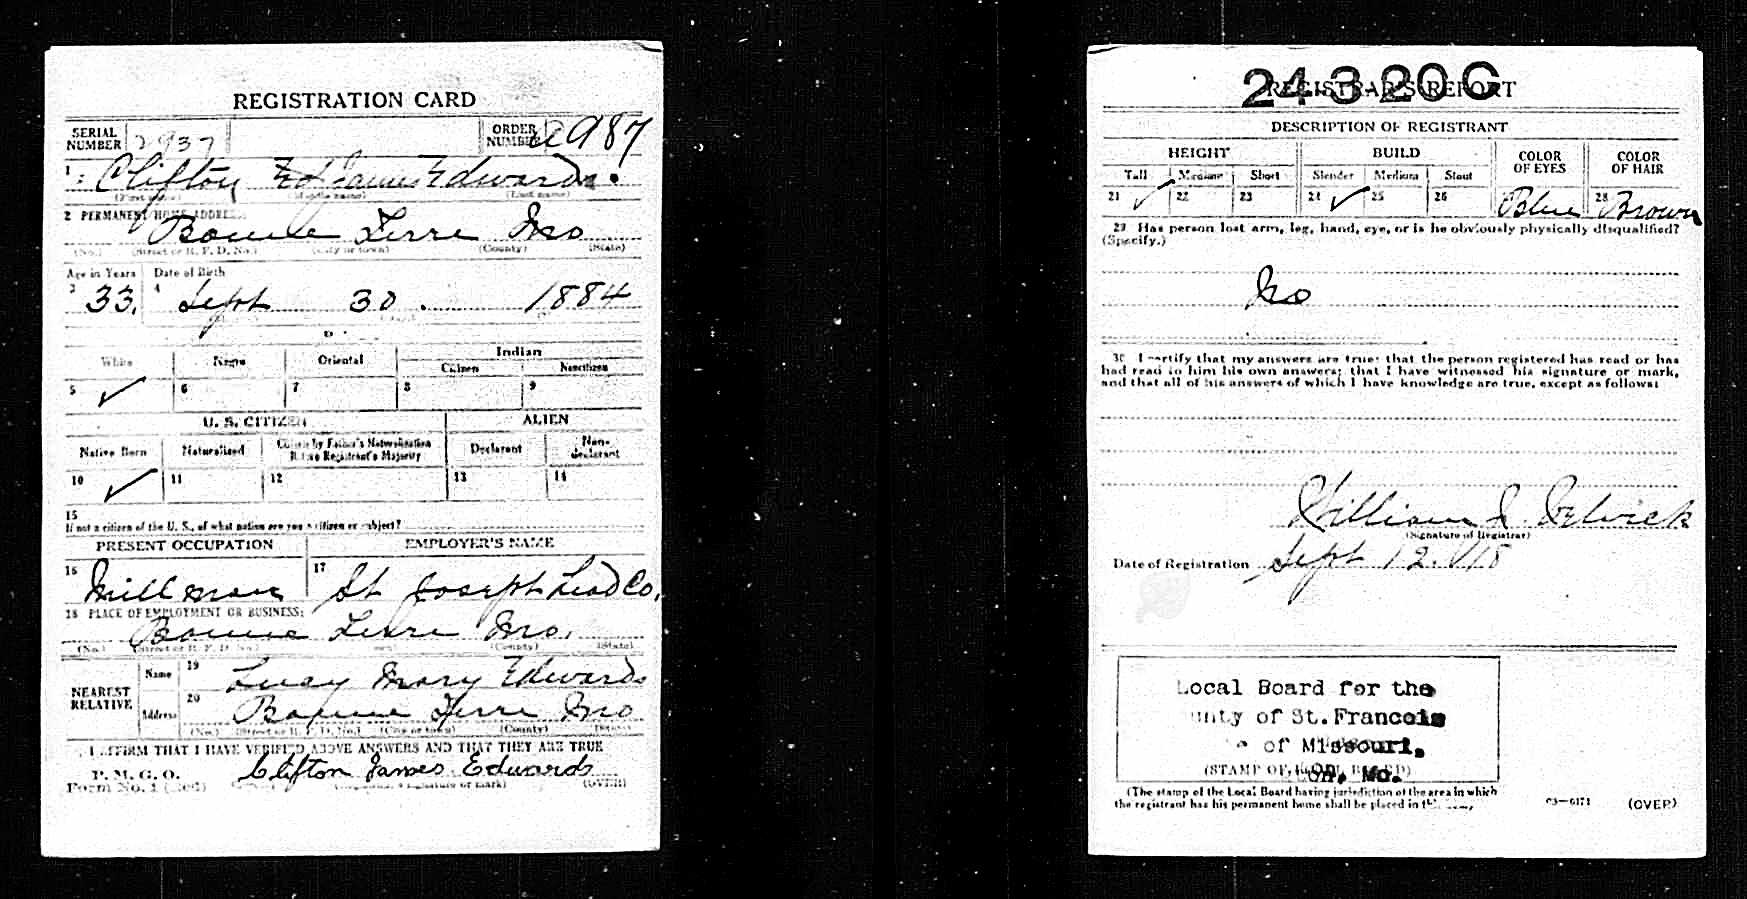 REGISTRATION CARD
SERIAL NUMBER 2937 ORDER NUMBER 2987
1 Clifton James Edwards.
(First name) (Middle name) (Last name)
2 PERMANENT HOME ADDRESS:
Bonne Terre Mo
(No.) (Street or R. F. D. No.) (City or town) (County) (State)
Age in Years Date of Birth
3 33. 4 Sept 30. 1884
White Negro Oriental Indian
Citizen Noncitizen
5 ✓ 6 7 8 9
U. S. CITIZEN ALIEN
Native Born Naturalized Citizen by Father's Naturalization Before Registrant's Majority Declarant Non-declarant
10 ✓ 11 12 13 14
15
If not a citizen of the U. S., of what nation are you a citizen or subject?
PRESENT OCCUPATION EMPLOYER'S NAME
16 Mill man 17 St Joseph Lead Co.
18 PLACE OF EMPLOYMENT OR BUSINESS:
Bonne Terre Mo.
(No.) (Street or R. F. D. No.) (County) (State)
NEAREST RELATIVE Name 19 Lucy Mary Edwards
Address 20 Bonne Terre Mo
(No.) (Street or R. F. D. No.) (City or town) (County) (State)
I AFFIRM THAT I HAVE VERIFIED ABOVE ANSWERS AND THAT THEY ARE TRUE
P. M. G. O.
Form No. 1 (Red) Clifton James Edwards
(Registrant's signature or mark) (OVER)
REGISTRAR'S REPORT
24 3 20 C
DESCRIPTION OF REGISTRANT
HEIGHT BUILD COLOR OF EYES COLOR OF HAIR
Tall Medium Short Slender Medium Stout
21 ✓ 22 23 24 ✓ 25 26 Blue 28 Brown
29 Has person lost arm, leg, hand, eye, or is he obviously physically disqualified?
(Specify.)
No
30 I certify that my answers are true; that the person registered has read or has
had read to him his own answers; that I have witnessed his signature or mark,
and that all of his answers of which I have knowledge are true, except as follows:
William
(Signature of Registrar)
Date of Registration Sept 12. 1918
Local Board for the
unty of St. Francois
e of Missouri.
(STAMP OF LOCAL BOARD)
on, Mo.
(The stamp of the Local Board having jurisdiction of the area in which
the registrant has his permanent home shall be placed in this box.)
03—6171 (OVER)